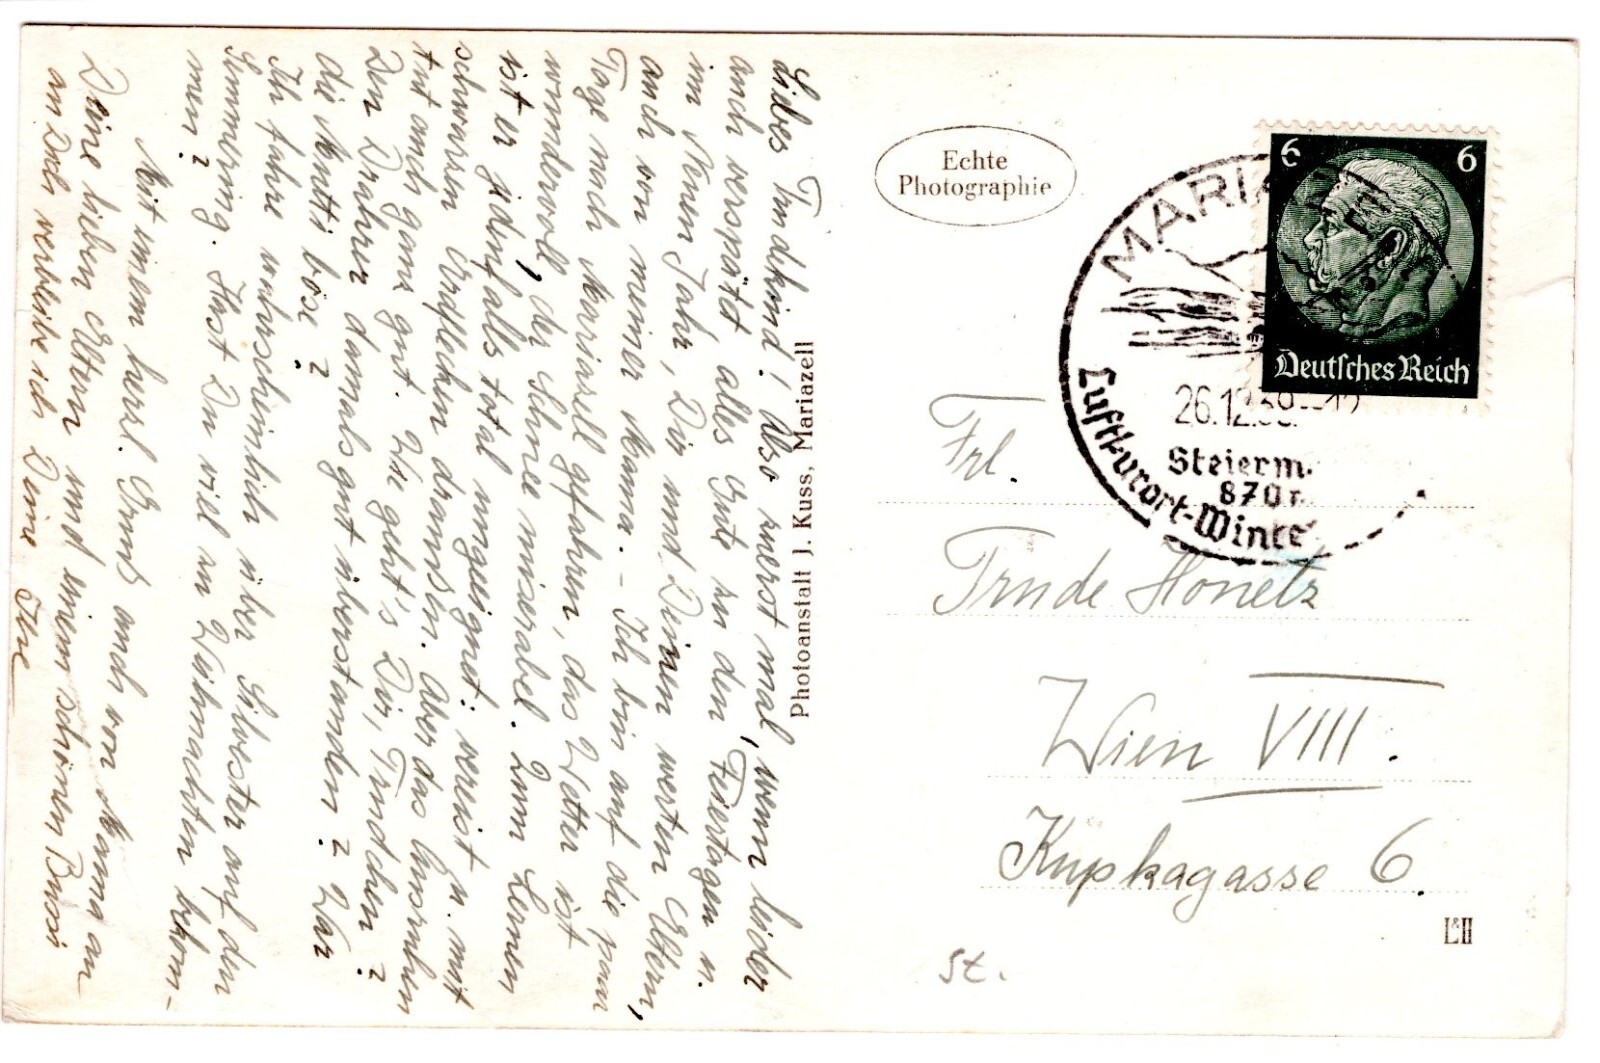 Liebes Trudikind! Also zuerst mal, wenn leider
auch verspätet, alles Gute zu den Feiertagen u.
im Neuen Jahr, Dir und Deinen werten Eltern,
auch von meiner Mama. - Ich bin auf die paar
Tage nach Mariazell gefahren, das Wetter ist
wundervoll, der Schnee miserabel. Zum Lernen
ist er jedenfalls total ungeeignet: vereist u. mit
schwarzen Erdflecken draussen. Aber das Ausruhen
tut auch ganz gut. Wie geht's Dir, Trudchen?
Den Drahrer damals gut überstanden? War
die Mutti böse?
Ich fahre wahrscheinlich über Silvester auf den
Semmering. Hast Du viel zu Weihnachten bekom-
men?
Mit einem herzl. Gruß auch von Mama an
Deine lieben Eltern und einem schönen Bussi
an Dich verbleibe ich Deine
Photoanstalt J. Kuss, Mariazell
Echte
Photographie
6 6
Deutsches Reich
26.12.38.-12
Steierm.
870
Luftkurort-Winte
Frl.
Trude Honetz
Wien VIII.
Kupkagasse 6.
St.